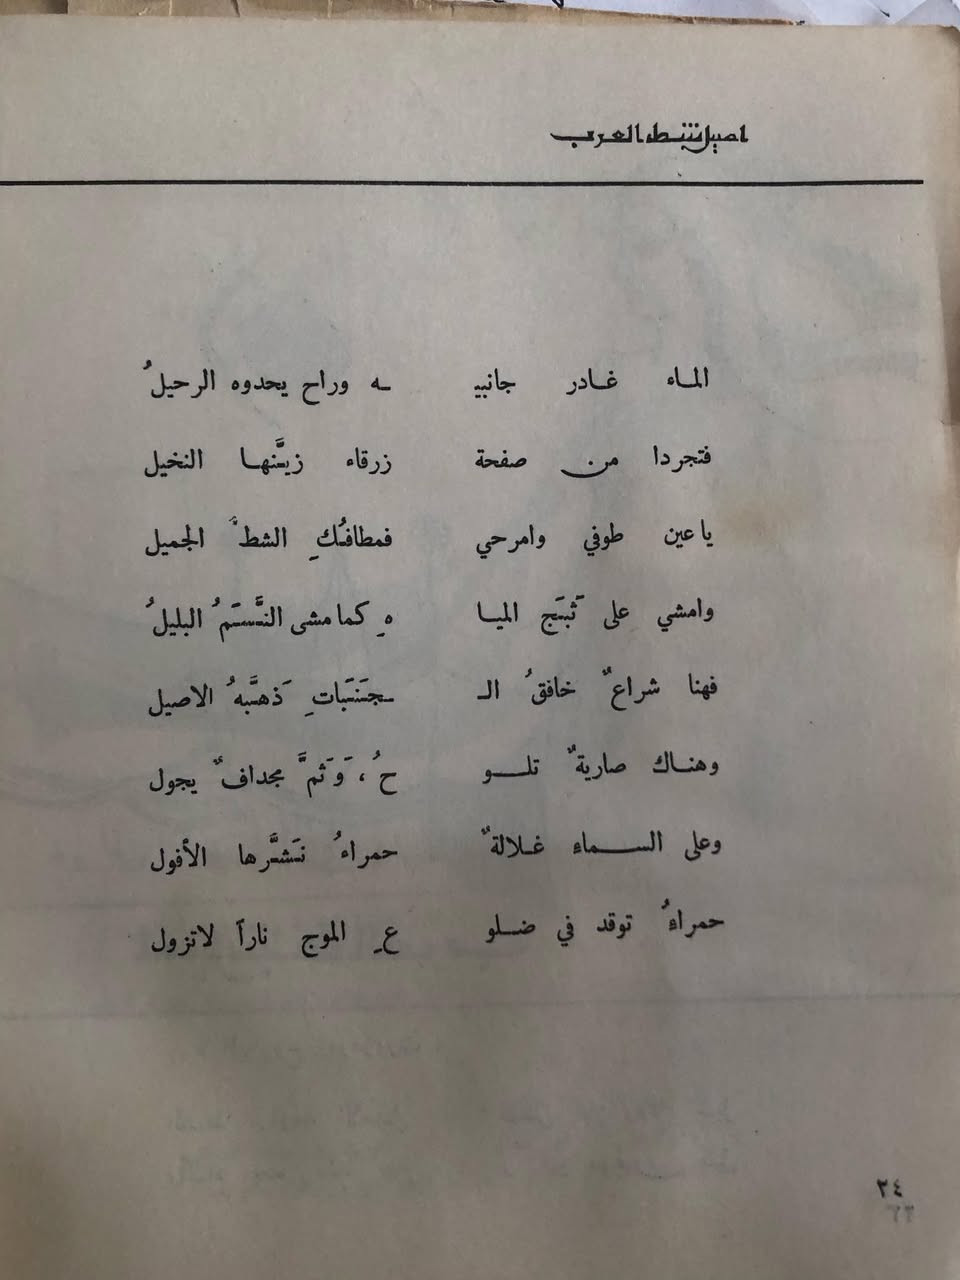 اصيل شط العرب
الماء غادر جانبيـ ـه وراح يحدوه الرحيلُ
فتجردا من صفحة زرقاء زيَّنها النخيل
يا عين طوفي وامرحي فمطافُكِ الشطُّ الجميل
وامشي على ثَبَج الميا هِ كما مشى النَّسَمُ البليلُ
فهنا شراعٌ خافقُ الـ ـجَنَباتِ ذَهَّبهُ الاصيل
وهناك صاريةٌ تلو حُ، وَثَمَّ مجدافٌ يجول
وعلى السماءِ غلالةٌ حمراءُ نَشَّرها الأفول
حمراءُ توقد في ضلو عِ الموج ناراً لاتزول
٣٤